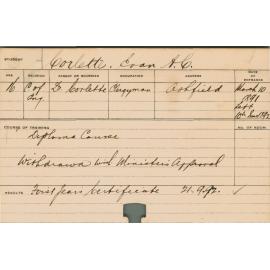 STUDENT Corlette, Evan A.C.
AGE RELIGION PARENT OR GUARDIAN OCCUPATION ADDRESS DATE OF ENTRANCE
16 C of Eng. D. Corlette Clergyman Ashfield March 10 1891
Left
10th June 1892
COURSE OF TRAINING No. OF ROOM.
Diploma Course
Withdrawn with Minister's Approval
RESULTS First Years Certificate 21.9.92.